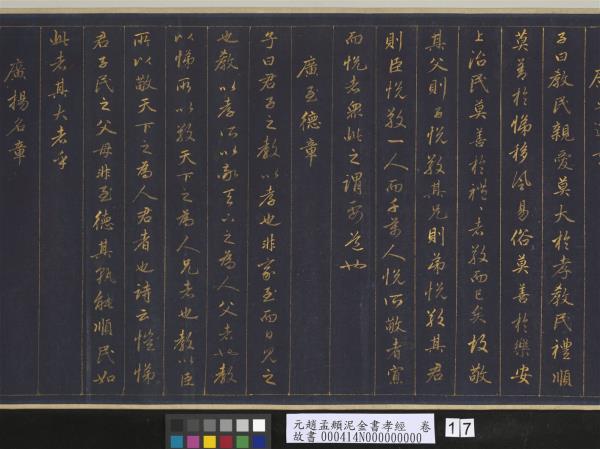 子曰教民親愛莫大於孝教民禮順
莫善於悌移風易俗莫善於樂安
上治民莫善於禮者敬而已矣故敬
其父則子悅敬其兄則弟悅敬其君
則臣悅敬一人而千萬人悅所敬者寡
而悅者衆此之謂要道也
廣至德章
子曰君子之教以孝也非家至而日見之
也教以孝所以敬天下之為人父者也教
以悌所以敬天下之為人兄者也教以臣
所以敬天下之為人君者也詩云愷悌
君子民之父母非至德其孰能順民如
此者其大者乎
廣揚名章
元趙孟頫泥金書孝經 卷
故書000414N000000000
17